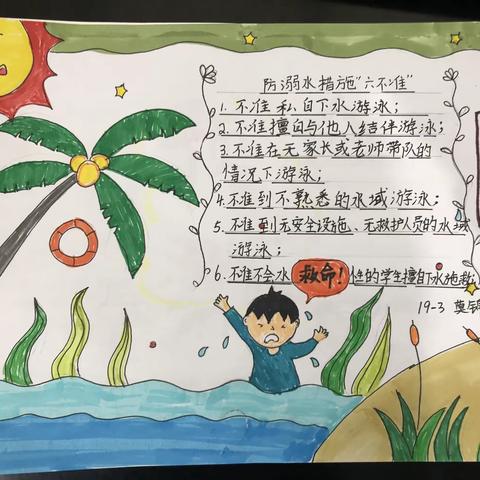 防溺水措施“六不准”
1. 不准私自下水游泳；
2. 不准擅自与他人结伴游泳；
3. 不准在无家长或老师带队的
情况下游泳；
4. 不准到不熟悉的水域游泳；
5. 不准到无安全设施、无救护人员的水域
游泳；
6. 不准不会水性的学生擅自下水施救
救命！
19-3 莫